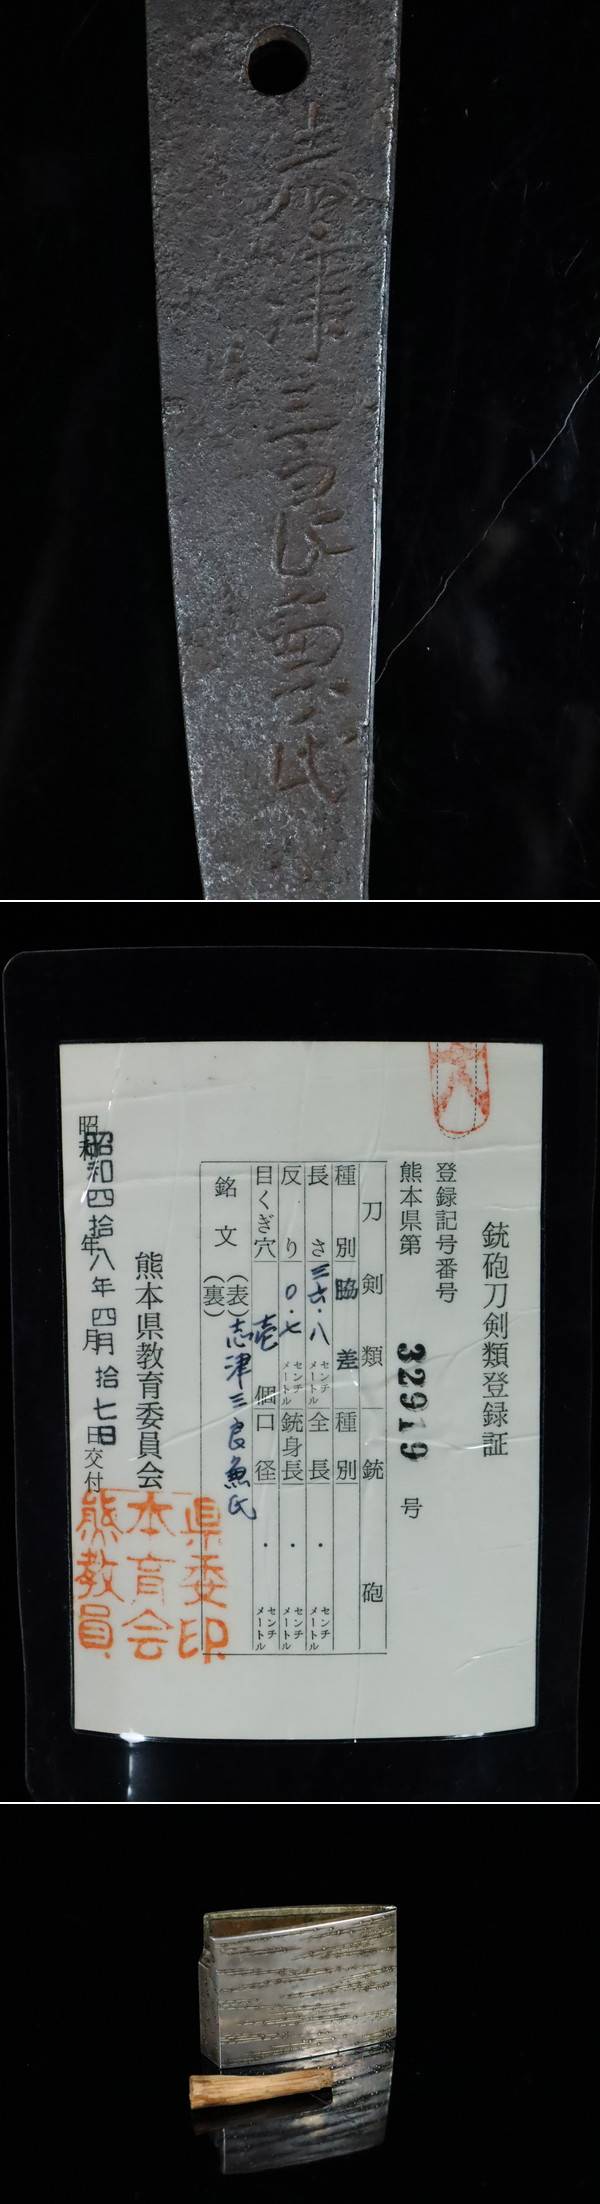 志津三郎兼氏
銃砲刀剣類登録証
登録記号番号
熊本県第 32919 号
刀剣類 銃砲
種別 脇差 種別
長さ 三六・八 センチメートル 全長 ・ センチメートル
反り 〇・七 センチメートル 銃身長 ・ センチメートル
目くぎ穴 壱個 口径 ・ センチメートル
銘文 (表) 志津三良兼氏
(裏)
熊本県教育委員会
昭和四拾八年四月拾七日交付
県委印
本育会
熊教員